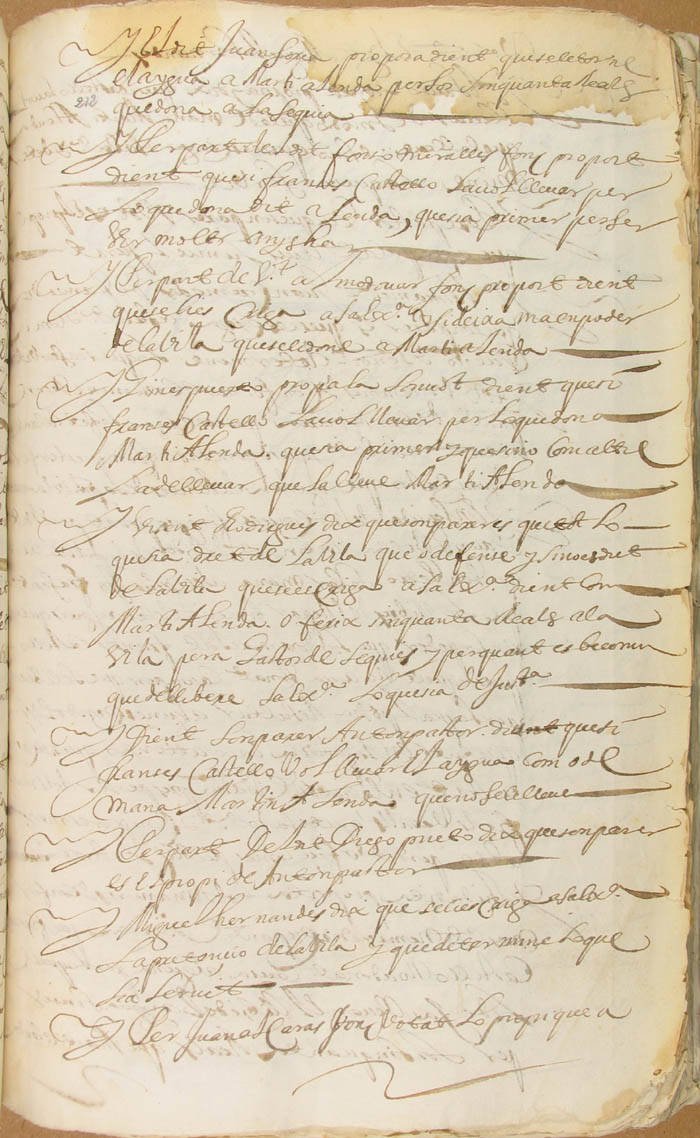 Y El dit Juan Soria proposa dient que se le torne
el aygua a Marti Alenda per los sinquanta Reals
que dona a la Sequia
212
Y Per part de dit fonso miralles fonch proposat
dient que si franses Castello la vol llevar per
lo que dona dit Alenda, que sia primer per ser
Ver molts anys ha
Y Per part de Vt. Almodovar fonch proposat dient
que se lies Caiga a sa Exa. y si deixa ma en poder
de la Vila que se le done a Marti Alenda
Y Gines puerto propia la Servist dient que si
franses Castello la vol llevar per lo que dona
Marti Alenda. que sia primer y que sino Com altre
la de llevar que la lleve Marti Alenda
Y Visent Rodrigues dix que son parer es que tot lo
que sia dret de la Vila que o defense y sino es dret
de la Vila que se es Caiga a sa Exa. dient Com
Marti Alenda oferix sinquanta Reals a la
Vila pera gastos de Sequies y per quant es be comu
que dellibere sa Exa. lo que sia de Justa.
Y Dient son parer Anton pastor. dient que si
franses Castello Vol llevar El aygua Com o de
mana Martin Alenda que no se le lleve
Y Per part De dit Diego prieto dix que son parer
es Es propi de Anton pastor
Y Miguel hernandes dix que se lies Caiga a sa Exa.
la pretencio de la Vila y que determine lo que
sia servit
Y Per Juan Alcaras fonch Votat lo propi que a